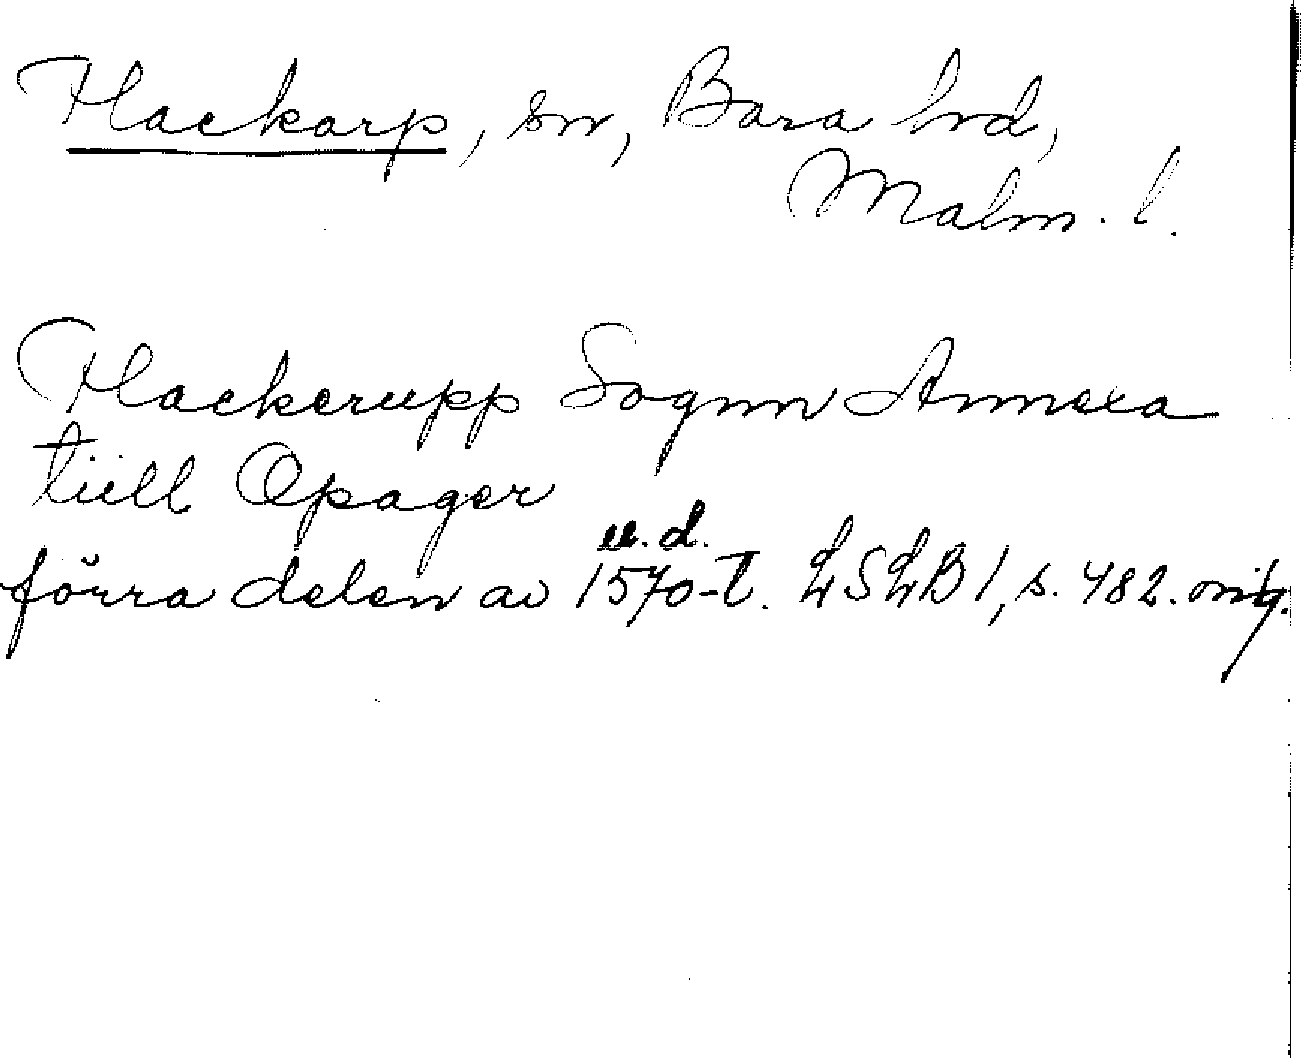 Hackarp, sn, Bara hd,
Malm. l.
Hackerupp Sognn Annexa
tiill Opager
u. d.
förra delen av 1570-t. LSLB 1, s. 482. orig.